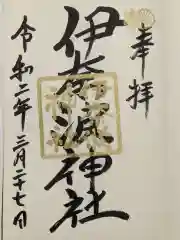 奉拝
伊奈波神社
令和二年三月二十七日